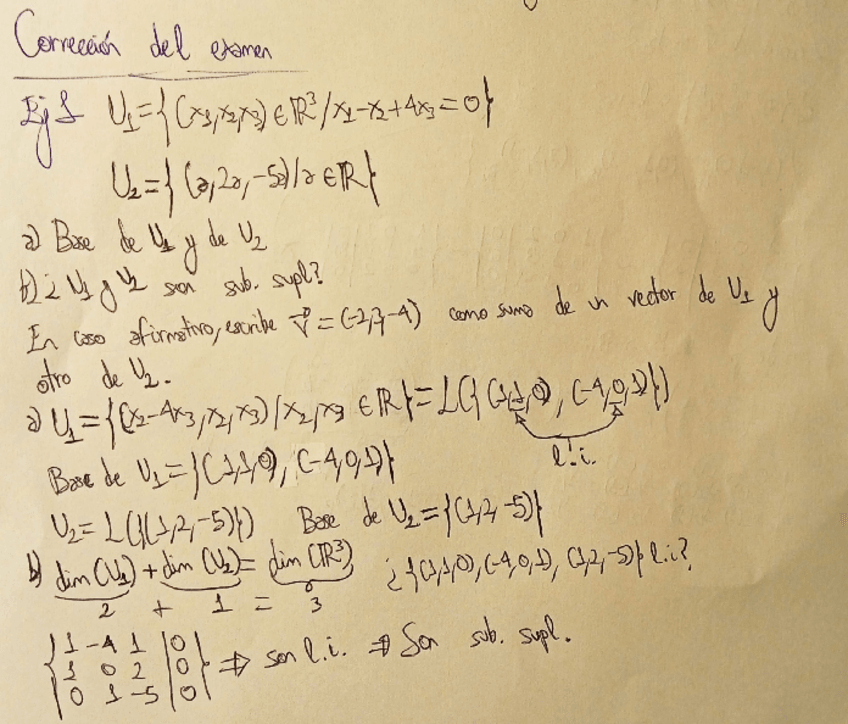 Corrección del examen
Ej 1 U₁={(x₁,x₂,x₃)∈ℝ³/x₁-x₂+4x₃=0}
U₂={(a,2a,-5a)/a∈ℝ}
a) Base de U₁ y de U₂
b) ¿U₁ y U₂ son sub. supl?
En caso afirmativo, escribe v⃗=(-2,3,-4) como suma de un vector de U₁ y
otro de U₂.
a) U₁={(x₂-4x₃,x₂,x₃)/x₂,x₃∈ℝ}=L({(1,1,0),(-4,0,1)})
l.i.
Base de U₁={(1,1,0),(-4,0,1)}
U₂=L({(1,2,-5)}) Base de U₂={(1,2,-5)}
b) dim(U₁)+dim(U₂)=dim(ℝ³) ¿{(1,1,0),(-4,0,1),(1,2,-5)} l.i?
2 + 1 = 3
1 -4 1 | 0
1 0 2 | 0 ⇒ son l.i. ⇒ Son sub. supl.
0 1 -5 | 0